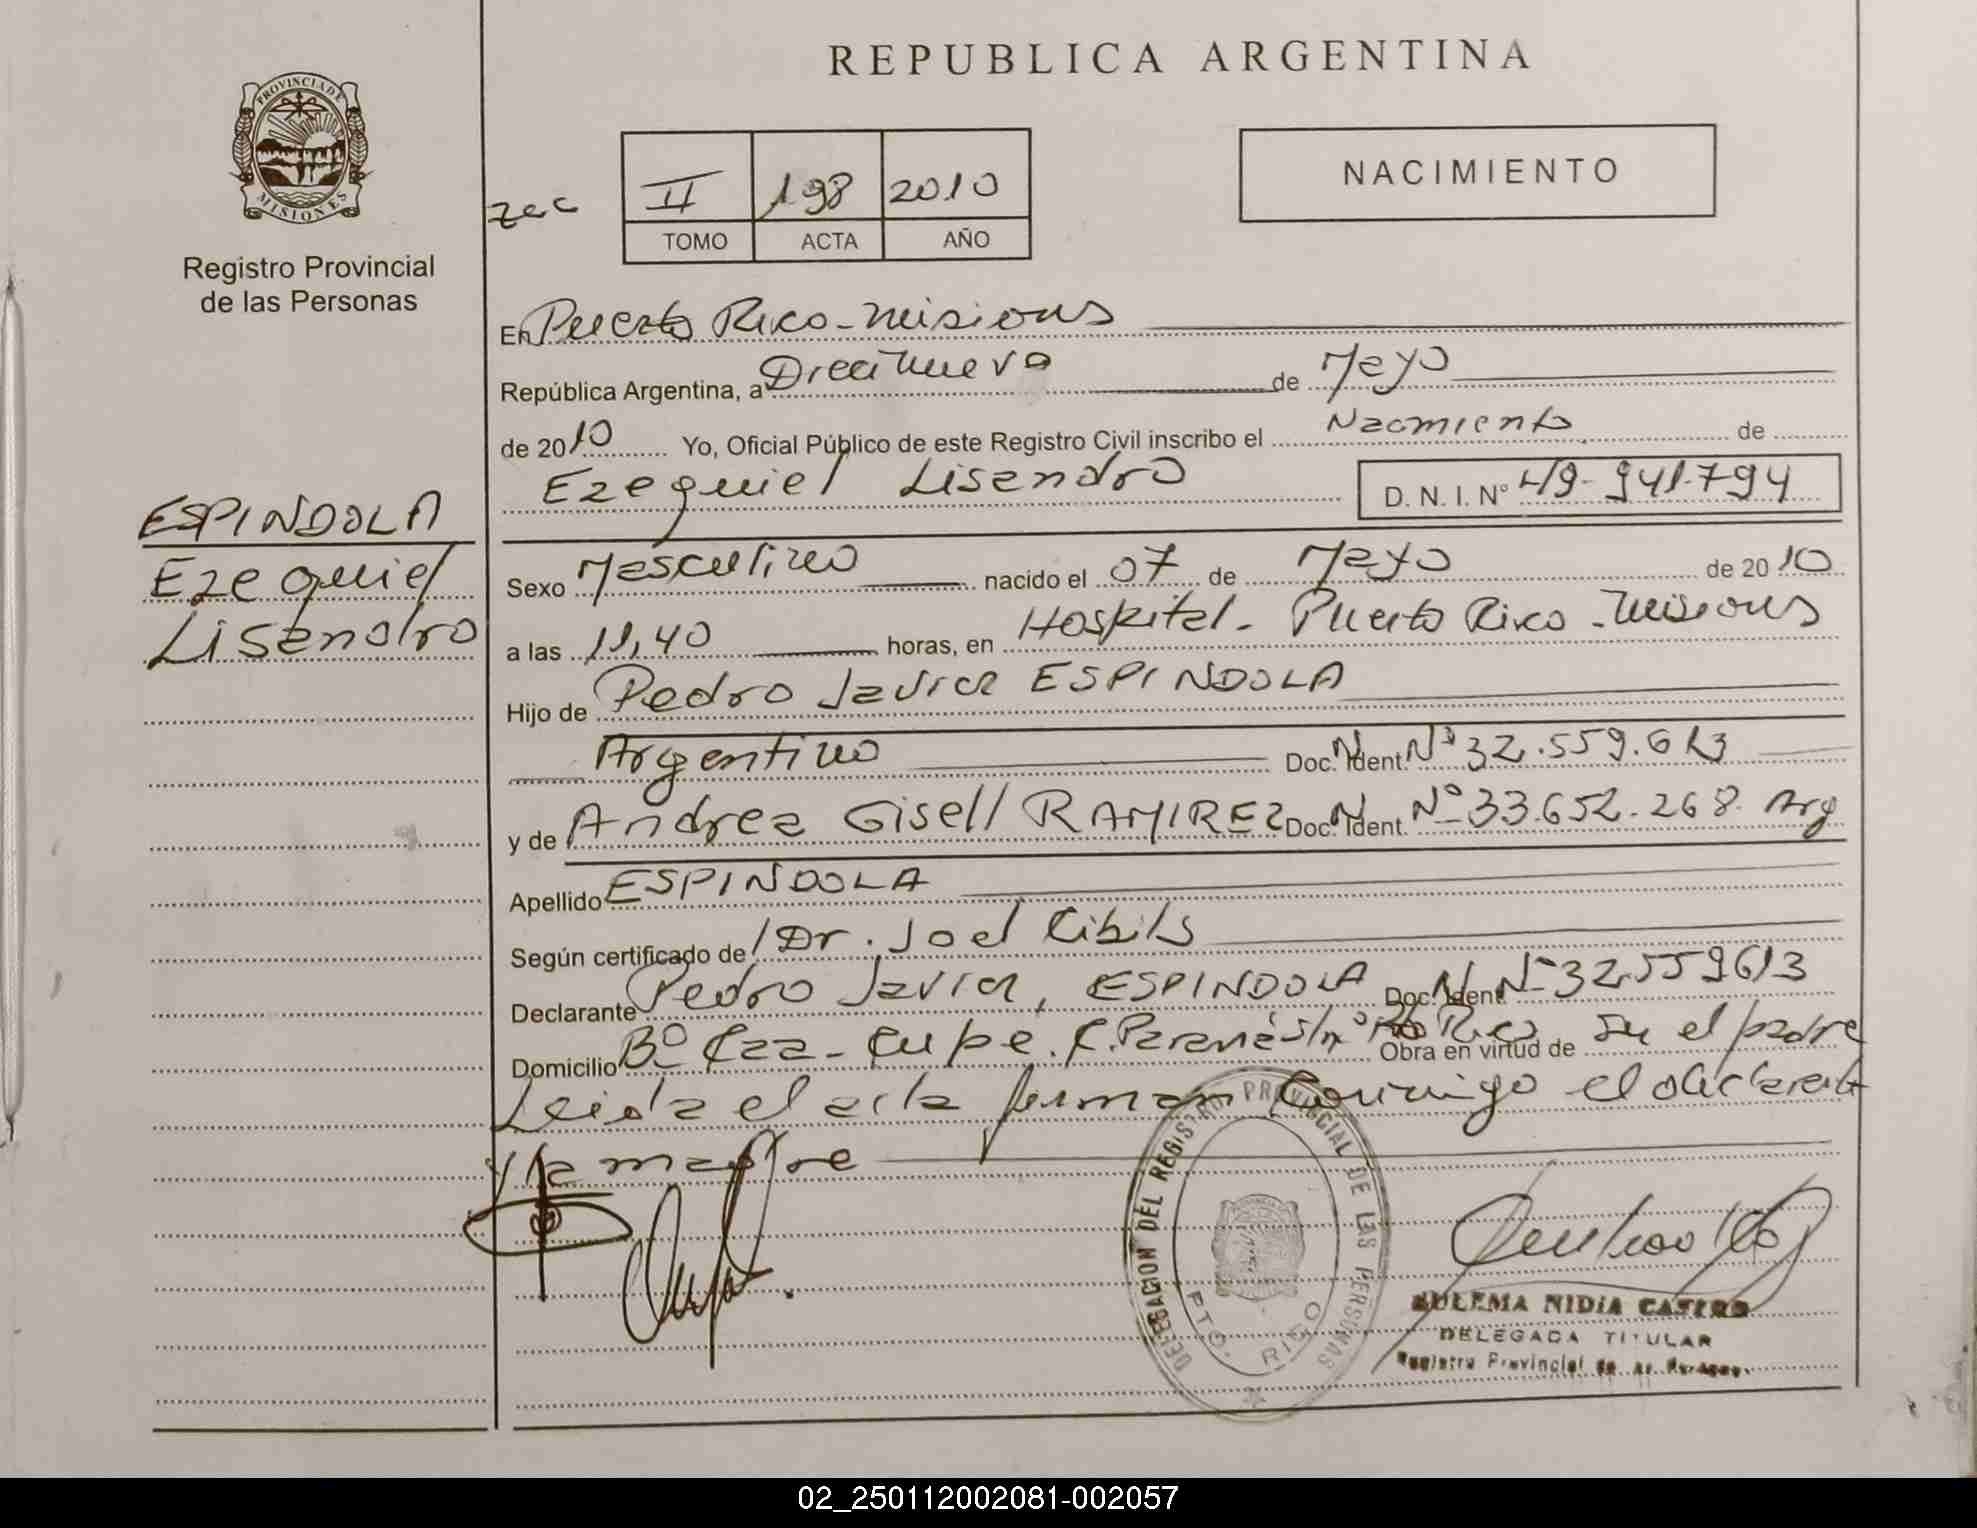 REPUBLICA ARGENTINA
PROVINCIA DE
MISIONES
Registro Provincial
de las Personas
NACIMIENTO
II 198 2010
TOMO ACTA AÑO
En Puerto Rico - Misiones
República Argentina, a Diecinueve de Mayo
de 2010 Yo, Oficial Público de este Registro Civil inscribo el Nacimiento de
Ezequiel Lisandro D. N. I. N° 49-941-794
ESPINDOLA
Ezequiel
Lisandro
Sexo Masculino nacido el 07 de Mayo de 2010
a las 11,40 horas, en Hospital - Puerto Rico - Misiones
Hijo de Pedro Javier ESPINDOLA
Argentino Doc. N. Ident. N° 32.559.613
y de Andrea Gisell RAMIREZ Doc. N. Ident. N° 33.652.268 Arg
Apellido ESPINDOLA
Según certificado de Dr. Joel Cibils
Declarante Pedro Javier, ESPINDOLA Doc. N. Ident. N° 32559613
Domicilio B° Caa - Cupe. C. Paraná s/n° Pto Rico Obra en virtud de Su el padre
Leida el acta firman Conmigo el declarante
y la madre
DELEGACION DEL REGISTRO PROVINCIAL DE LAS PERSONAS
PTO. RICO
ZULEMA NIDIA CASTRO
DELEGADA TITULAR
Registro Provincial de las Personas
02_250112002081-002057